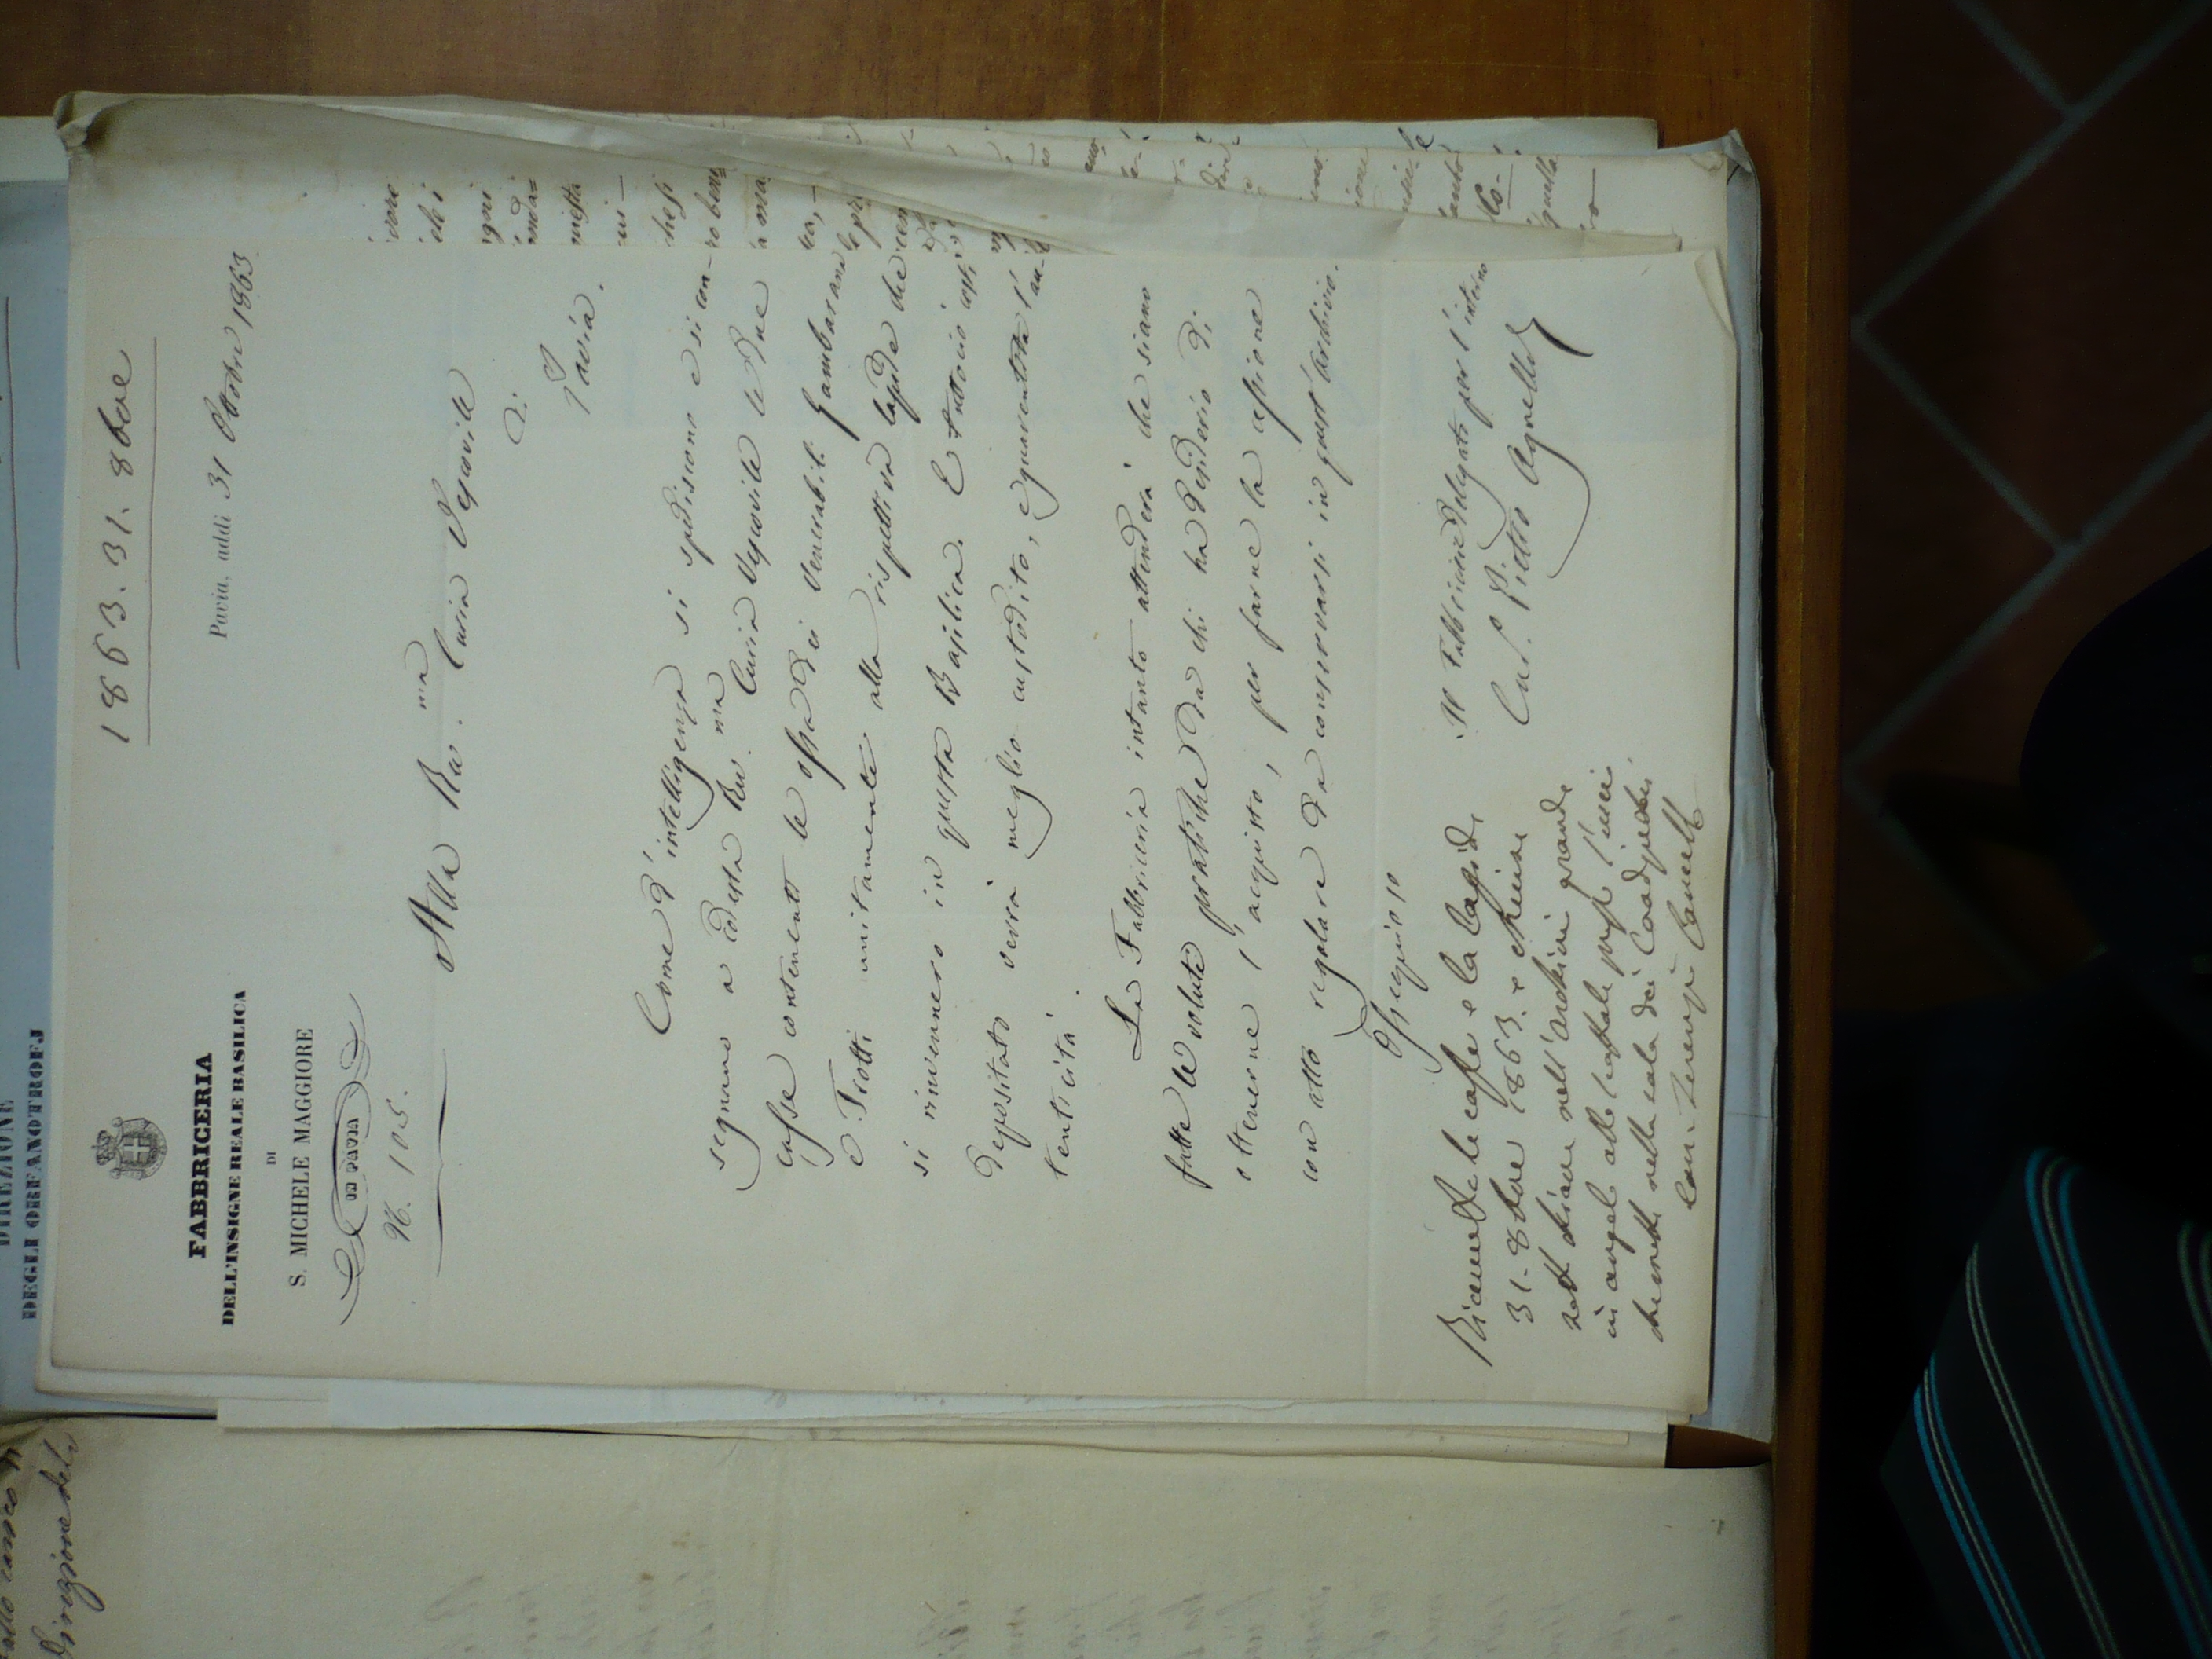 1863. 31. 8bre
FABBRICERIA
DELL'INSIGNE REALE BASILICA
DI
S. MICHELE MAGGIORE
IN PAVIA
N. 105.
Pavia, addì 31 Ottobre 1863.
Alla Rev.ma Curia Vescovile
di
Pavia.
Come d'intelligenza si spediscono e si con-
segnano a codesta Rev.ma Curia Vescovile le due
casse contenenti le ossa dei Venerabili Gambarana
e Trotti unitamente alla rispettiva lapide che
si rinvennero in questa Basilica. E tuttociò così
depositato verrà meglio custodito, e guarentita l'au-
tenticità.
La Fabbriceria intanto attenderà che siano
fatte le volute pratiche da chi ha desiderio di
ottenerne l'acquisto, per farne la cessione
con atto regolare da conservarsi in quest'archivio.
Ossequioso
Il Fabbriciere Delegato per l'interno
Pietro Agnelli
Ricevute le casse e la lapide
31. 8bre 1863. e chiuse
sotto chiave nell'archivio grande
in angolo alle scaffali presso l'usci
che mette nella sala dei Coadjutori
DIREZIONE
DEGLI ORFANOTROFJ
Direzione del